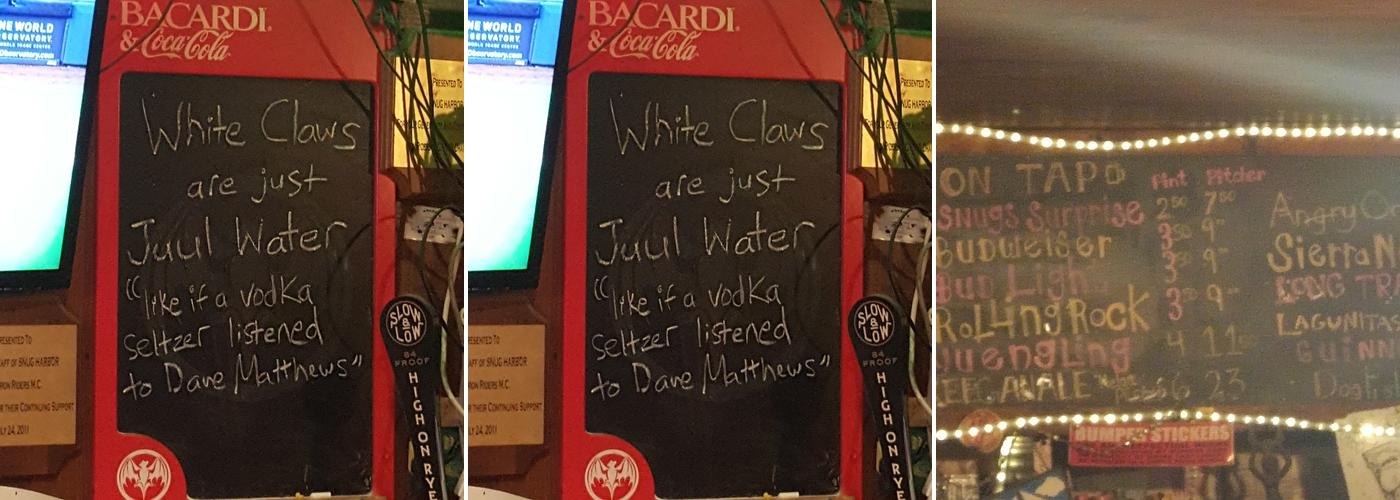 NE WORLD
SERVATORY.
WORLD TRADE CENTER
Observatory.com
BACARDI®
& Coca-Cola
White Claws
are just
Juul Water
"like if a vodka
seltzer listened
to Dave Matthews"
PRESENTED TO
SNUG HARBOR
SLOW
&
LOW
84
PROOF
HIGH ON RYE
RESENTED TO
AFF OF SNUG HARBOR
RON RIDERS M.C.
R THEIR CONTINUING SUPPORT
LY 24, 2011
NE WORLD
SERVATORY.
WORLD TRADE CENTER
Observatory.com
BACARDI®
& Coca-Cola
White Claws
are just
Juul Water
"like if a vodka
seltzer listened
to Dave Matthews"
PRESENTED TO
NUG HARBOR
SLOW
&
LOW
84
PROOF
HIGH ON RYE
RESENTED TO
AFF OF SNUG HARBOR
RON RIDERS M.C.
R THEIR CONTINUING SUPPORT
LY 24, 2011
ON TAP
Pint Pitcher
SNUGS Surprise 2.50 7.50
BUDWEISER 3.50 9
Bud Ligh 3 9
RoLLingRock 3 9
YUENGLING 4 11
KEEGAN ALE 6 23
Angry O
Sierra N
LONG TR
LAGUNITA
GUINN
Dogfis
BUMPER STICKERS